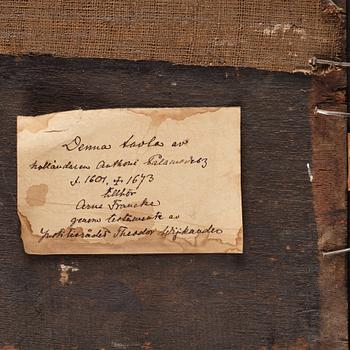 Denna tavla av
holländaren Anthoni Palamedesz
f. 1601, † 1673
tillhör
Arne Francke
genom testamente av
Justitierådet Theodor Wijkander